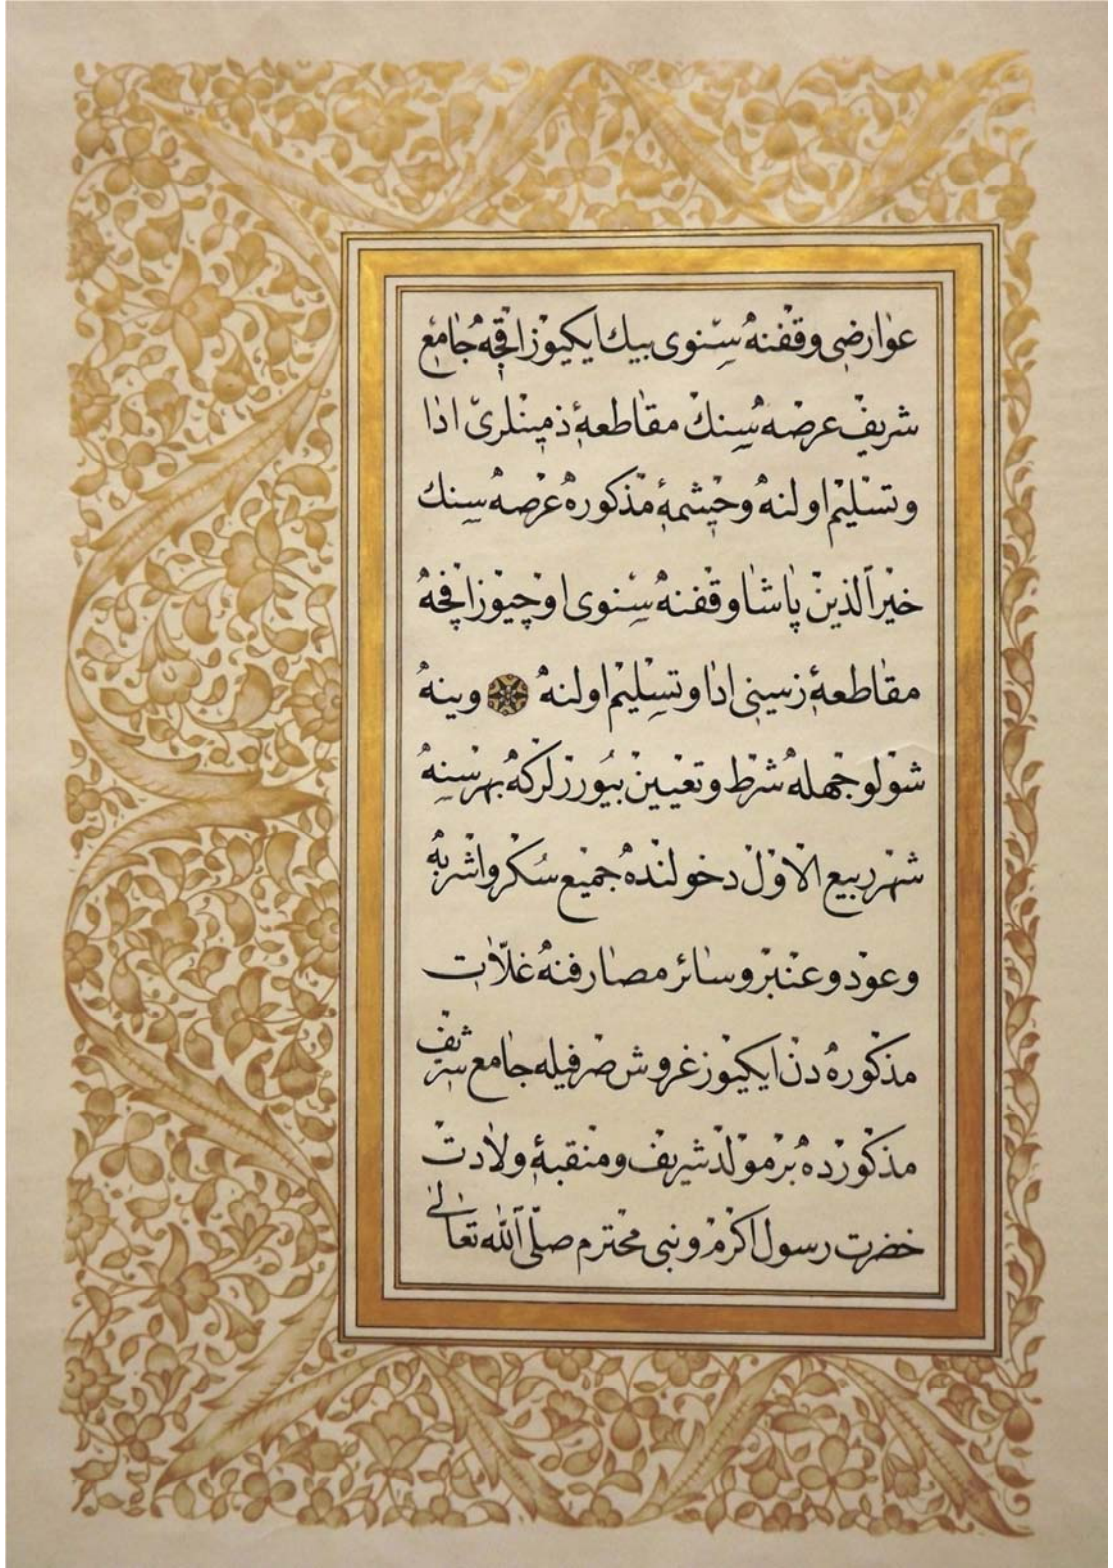 عوارضی وقفنه سنوی بیك ایکیوز اقچه جامع
شریف عرصه سنك مقاطعهٔ ذمینلری ادا
و تسلیم اولنه و چشمهٔ مذکوره عرصه سنك
خیرالدین پاشا وقفنه سنوی اوچیوز اقچه
مقاطعهٔ زمینی ادا و تسلیم اولنه وینه
شولوجهله شرط و تعیین بیوررلرکه بهرسنه
شهر ربیع الاول دخولنده جمیع سکر و اشربه
و عود و عنبر و سائر مصارفنه غلّات
مذکوره دن ایکیوز غروش صرفیله جامع شریف
مذکورده بر مولد شریف و منقبهٔ ولادت
حضرت رسول اکرم و نبی محترم صلّی الله تعالی